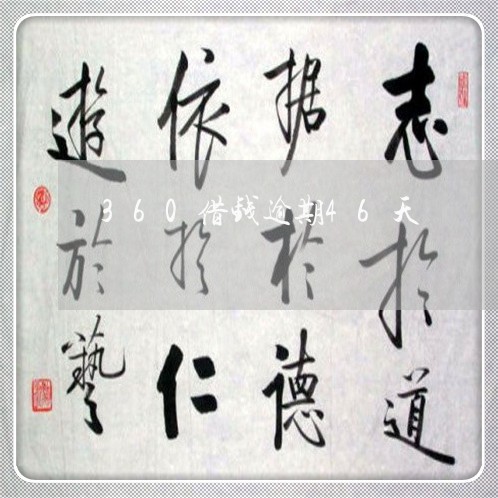 志於道
据於德
依於仁
遊於藝
360借钱逾期46天